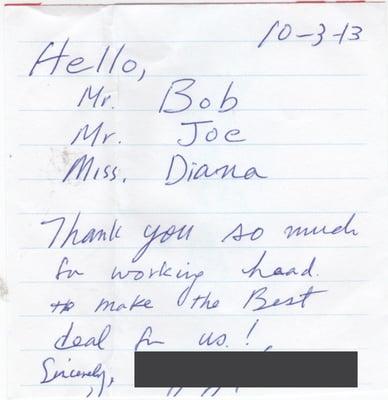 10-3-13
Hello,
Mr. Bob
Mr. Joe
Miss. Diana
Thank you so much
for working head.
to make the Best
deal for us.!
Sincerely,